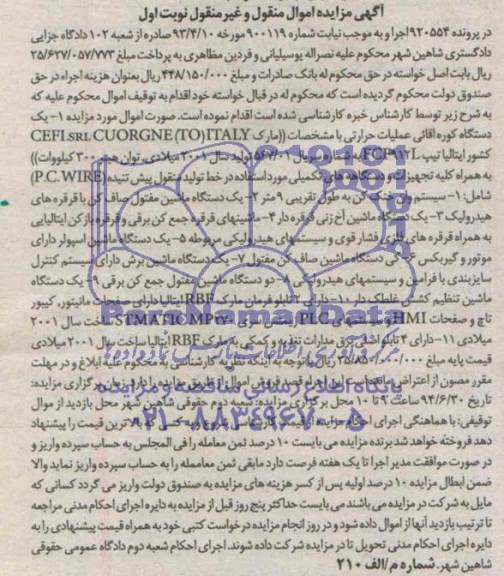 آگهی مزایده اموال منقول و غیر منقول نوبت اول
در پرونده ۹۲۰۵۵۴ اجرا و به موجب نیابت شماره ۹۰۰۱۱۹ مورخه ۹۳/۴/۱۰ صادره از شعبه ۱۰۲ دادگاه جزایی
دادگستری شاهین شهر محکوم علیه نصراله یوسلیانی و فردین مظاهری به پرداخت مبلغ ۲۵/۶۳۷/۰۵۷/۷۷۳
ریال بابت اصل خواسته در حق محکوم له بانک صادرات و مبلغ ۴۴۸/۱۵۰/۰۰۰ ریال بعنوان هزینه اجراء در حق
صندوق دولت محکوم گردیده است که محکوم له در قبال خواسته خود اقدام به توقیف اموال محکوم علیه که
به شرح زیر توسط کارشناس خبره کارشناسی شده است اقدام نموده است. صورت اموال مورد مزایده ۱- یک
دستگاه کوره القائی عملیات حرارتی با مشخصات ((مارک CEFI SRL CUORGNE (TO) ITALY
کشور ایتالیا تیپ به شماره سریال ۵۶۷/۰۱ تولید سال ۲۰۰۱ میلادی، توان هیتر ۳۰۰ کیلووات))
به همراه کلیه تجهیزات و دستگاه های تکمیلی مورد استفاده در خط تولید مفتول پیش تنیده (P.C.WIRE)
شامل: ۱- سیستم وان خنک کن به طول تقریبی ۹ متر ۲- یک دستگاه ماشین مفتول صاف کن با قرقره های
هیدرولیک ۳- یک دستگاه ماشین آخ زنی قرقره دار ۴- ماشینهای قرقره جمع کن برقی و قرقره بازکن ایتالیایی
به همراه قرقره های فلزی فشار قوی و سیستمهای هیدرولیکی مربوطه ۵- یک دستگاه ماشین اسپولر دارای
موتور و گیربکس ۶- یک دستگاه ماشین صاف کن مفتول ۷- یک دستگاه ماشین برش دارای سیستم کنترل
سایزبندی با فرامین و سیستمهای هیدرولیکی ۸- دو دستگاه ماشین مفتول جمع کن برقی ۹- یک دستگاه
ماشین تنظیم کشش غلطک دار ۱۰- دارای ۲ تابلو فرمان مارک RBF ایتالیا دارای صفحات مانیتور، کیبور
تاچ و صفحات HMI و سیستمهای PLC زیمنس سری ساخت سال ۲۰۰۱
میلادی ۱۱- دارای ۴ تابلو اصلی برق مدارات تغذیه و کمکی به مارک RBF ایتالیا ساخت سال ۲۰۰۱ میلادی
قیمت پایه مبلغ ریال با توجه به اینکه نظریه کارشناسی به محکوم علیه ابلاغ و در مهلت
مقرر مصون از اعتراض این اجرا قصد فروش اموال از طریق مزایده را دارد. برگزاری مزایده:
تاریخ ۹۴/۶/۳۰ ساعت ۹ تا ۱۰ محل برگزاری مزایده: شعبه دوم حقوقی شاهین شهر محل بازدید از اموال
توقیفی: با هماهنگی اجرای احکام مزایده از قیمت کارشناسی شروع و به کسانی که بالاترین قیمت را پیشنهاد
دهد فروخته خواهد شد برنده مزایده می بایست ۱۰ درصد ثمن معامله را فی المجلس به حساب سپرده واریز و
در صورت موافقت مدیر اجرا تا یک هفته فرصت دارد مابقی ثمن معامله را به حساب سپرده واریز نماید والا
ضمن ابطال مزایده ۱۰ درصد اولیه پس از کسر هزینه های مزایده به صندوق دولت واریز می گردد کسانی که
مایل به شرکت در مزایده می باشند می بایست حداکثر پنج روز قبل از مزایده به دایره اجرای احکام مدنی مراجعه
تا ترتیب بازدید آنها از اموال داده شود و در روز انجام مزایده درخواست کتبی خود به همراه قیمت پیشنهادی را به
دایره اجرای احکام مدنی تحویل تا در مزایده شرکت داده شوند. اجرای احکام شعبه دوم دادگاه عمومی حقوقی
شاهین شهر. شماره م/الف ۲۱۰
ParsNamadData
پایگاه اطلاع رسانی مناقصه و مزایده
۰۲۱-۸۸۳۴۹۶۷۰-۵